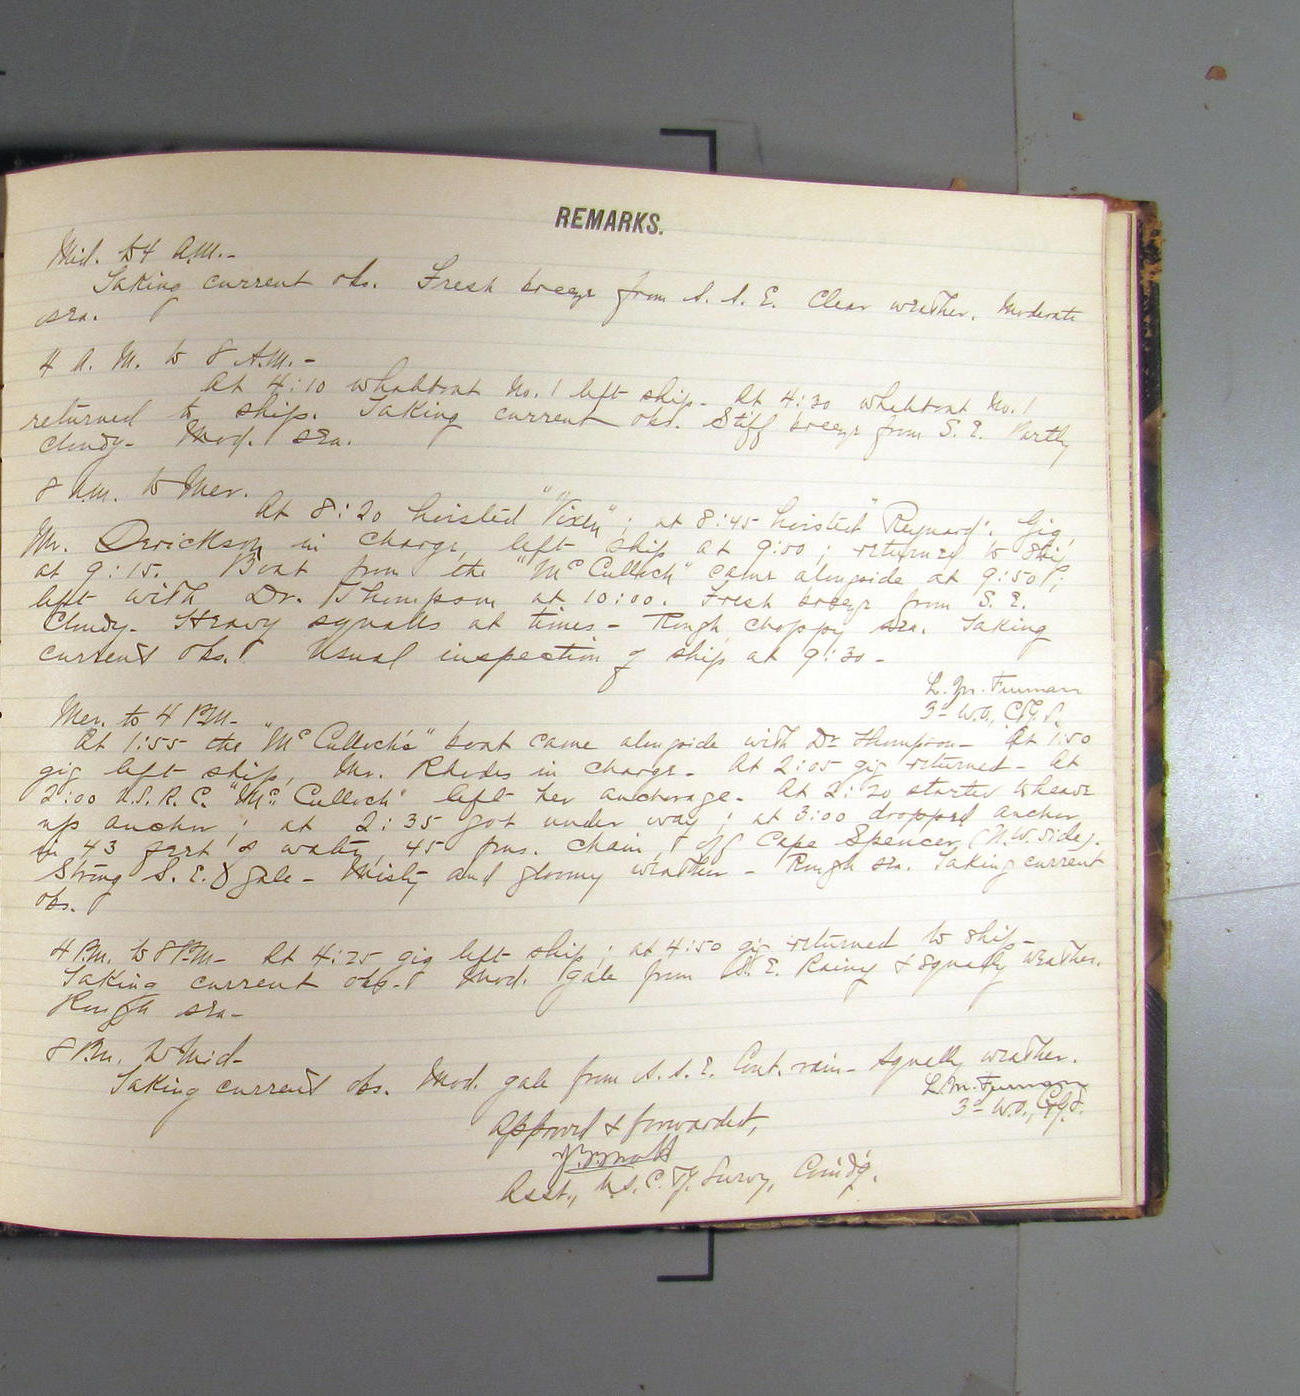 REMARKS.
Mid. to 4 A.M.-
Taking current obs. Fresh breeze from S. S. E. Clear weather. Moderate
sea.
4 A. M. to 8 A.M.-
At 4:10 whaleboat No. 1 left ship. At 4:30 whaleboat No. 1
returned to ship. Taking current obs. Stiff breeze from S. E. Partly
cloudy- Mod. sea.
8 A.M. to Mer.
At 8:20 hoisted "Vixen"; at 8:45 hoisted "Reynard". Gig,
Mr. Derickson in charge, left ship at 9:00; returned to ship
at 9:15. Boat from the "McCulloch" came alongside at 9:50;
left with Dr. Thompson at 10:00. Fresh breeze from S. E.
Cloudy- Heavy squalls at times- Rough, choppy sea. Taking
current obs. Usual inspection of ship at 9:30-
L. M. Furman
3d W.O., C&G. S.
Mer. to 4 P.M-
At 1:55 the "McCulloch's" boat came alongside with Dr. Thompson- At 1:50
gig left ship, Mr. Rhodes in charge- At 2:05 gig returned- At
2:00 U.S.R.C. "McCulloch" left her anchorage. At 2:20 started to heave
up anchor; at 2:35 got under way; at 3:00 dropped anchor
in 43 water, 45 fms. chain, off Cape Spencer (N.W. side).
Strong S. E. gale- Misty and gloomy weather- Rough sea. Taking current
obs.
4 P.M. to 8 P.M- At 4:25 gig left ship; at 4:50 gig returned to ship-
Taking current obs. Mod. gale from S. E. Rainy & squally weather.
Rough sea-
8 P.M. to Mid-
Taking current obs. Mod. gale from S. S. E. Cont. rain- Squally weather.
L. M. Furman
3d W.O., C&G.S.
Approved & forwarded,
Asst., U.S. C. & G. Survey, Com'd'g.